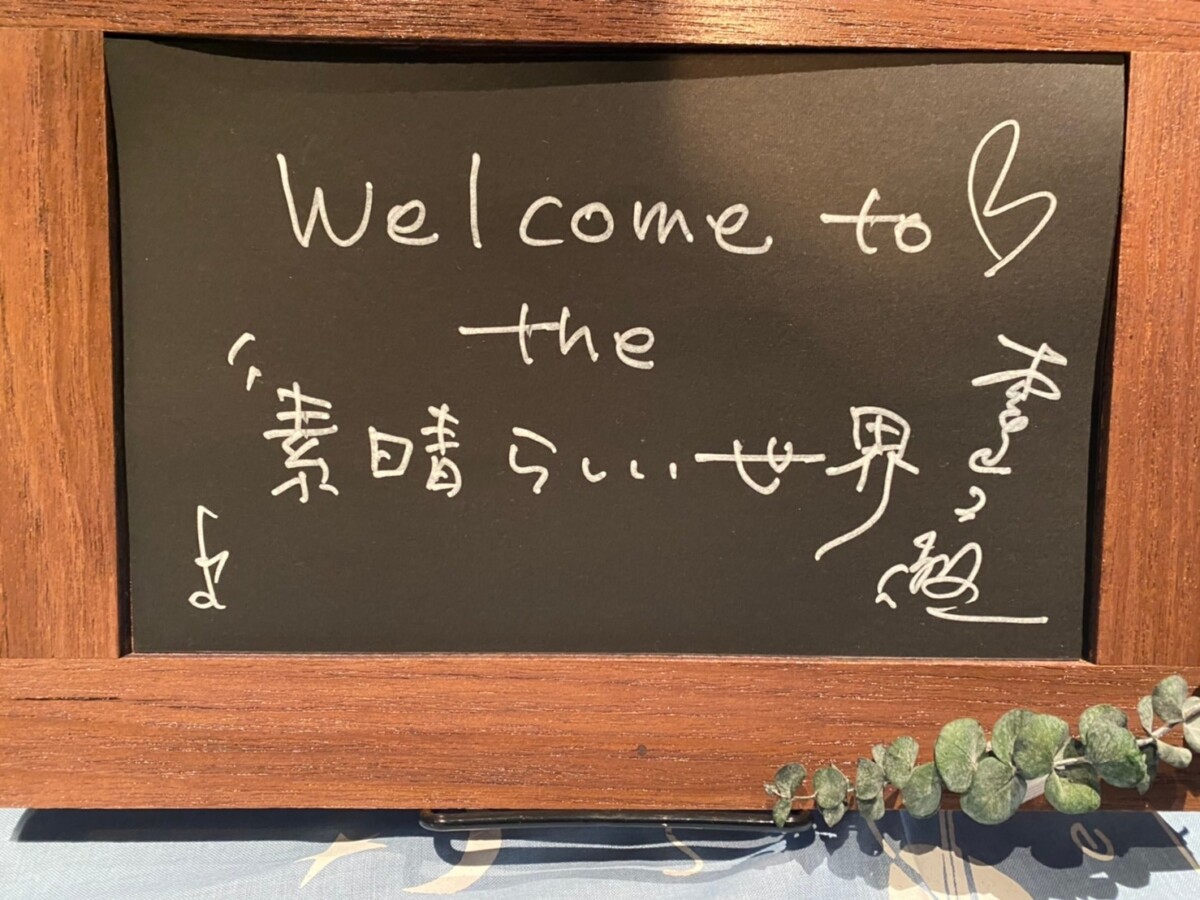 Welcome to
the
素晴らしい世界